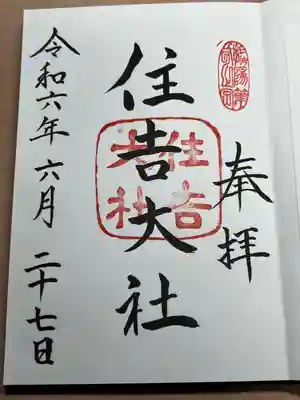 奉拝
住吉大社
住吉大社
令和六年六月二十七日